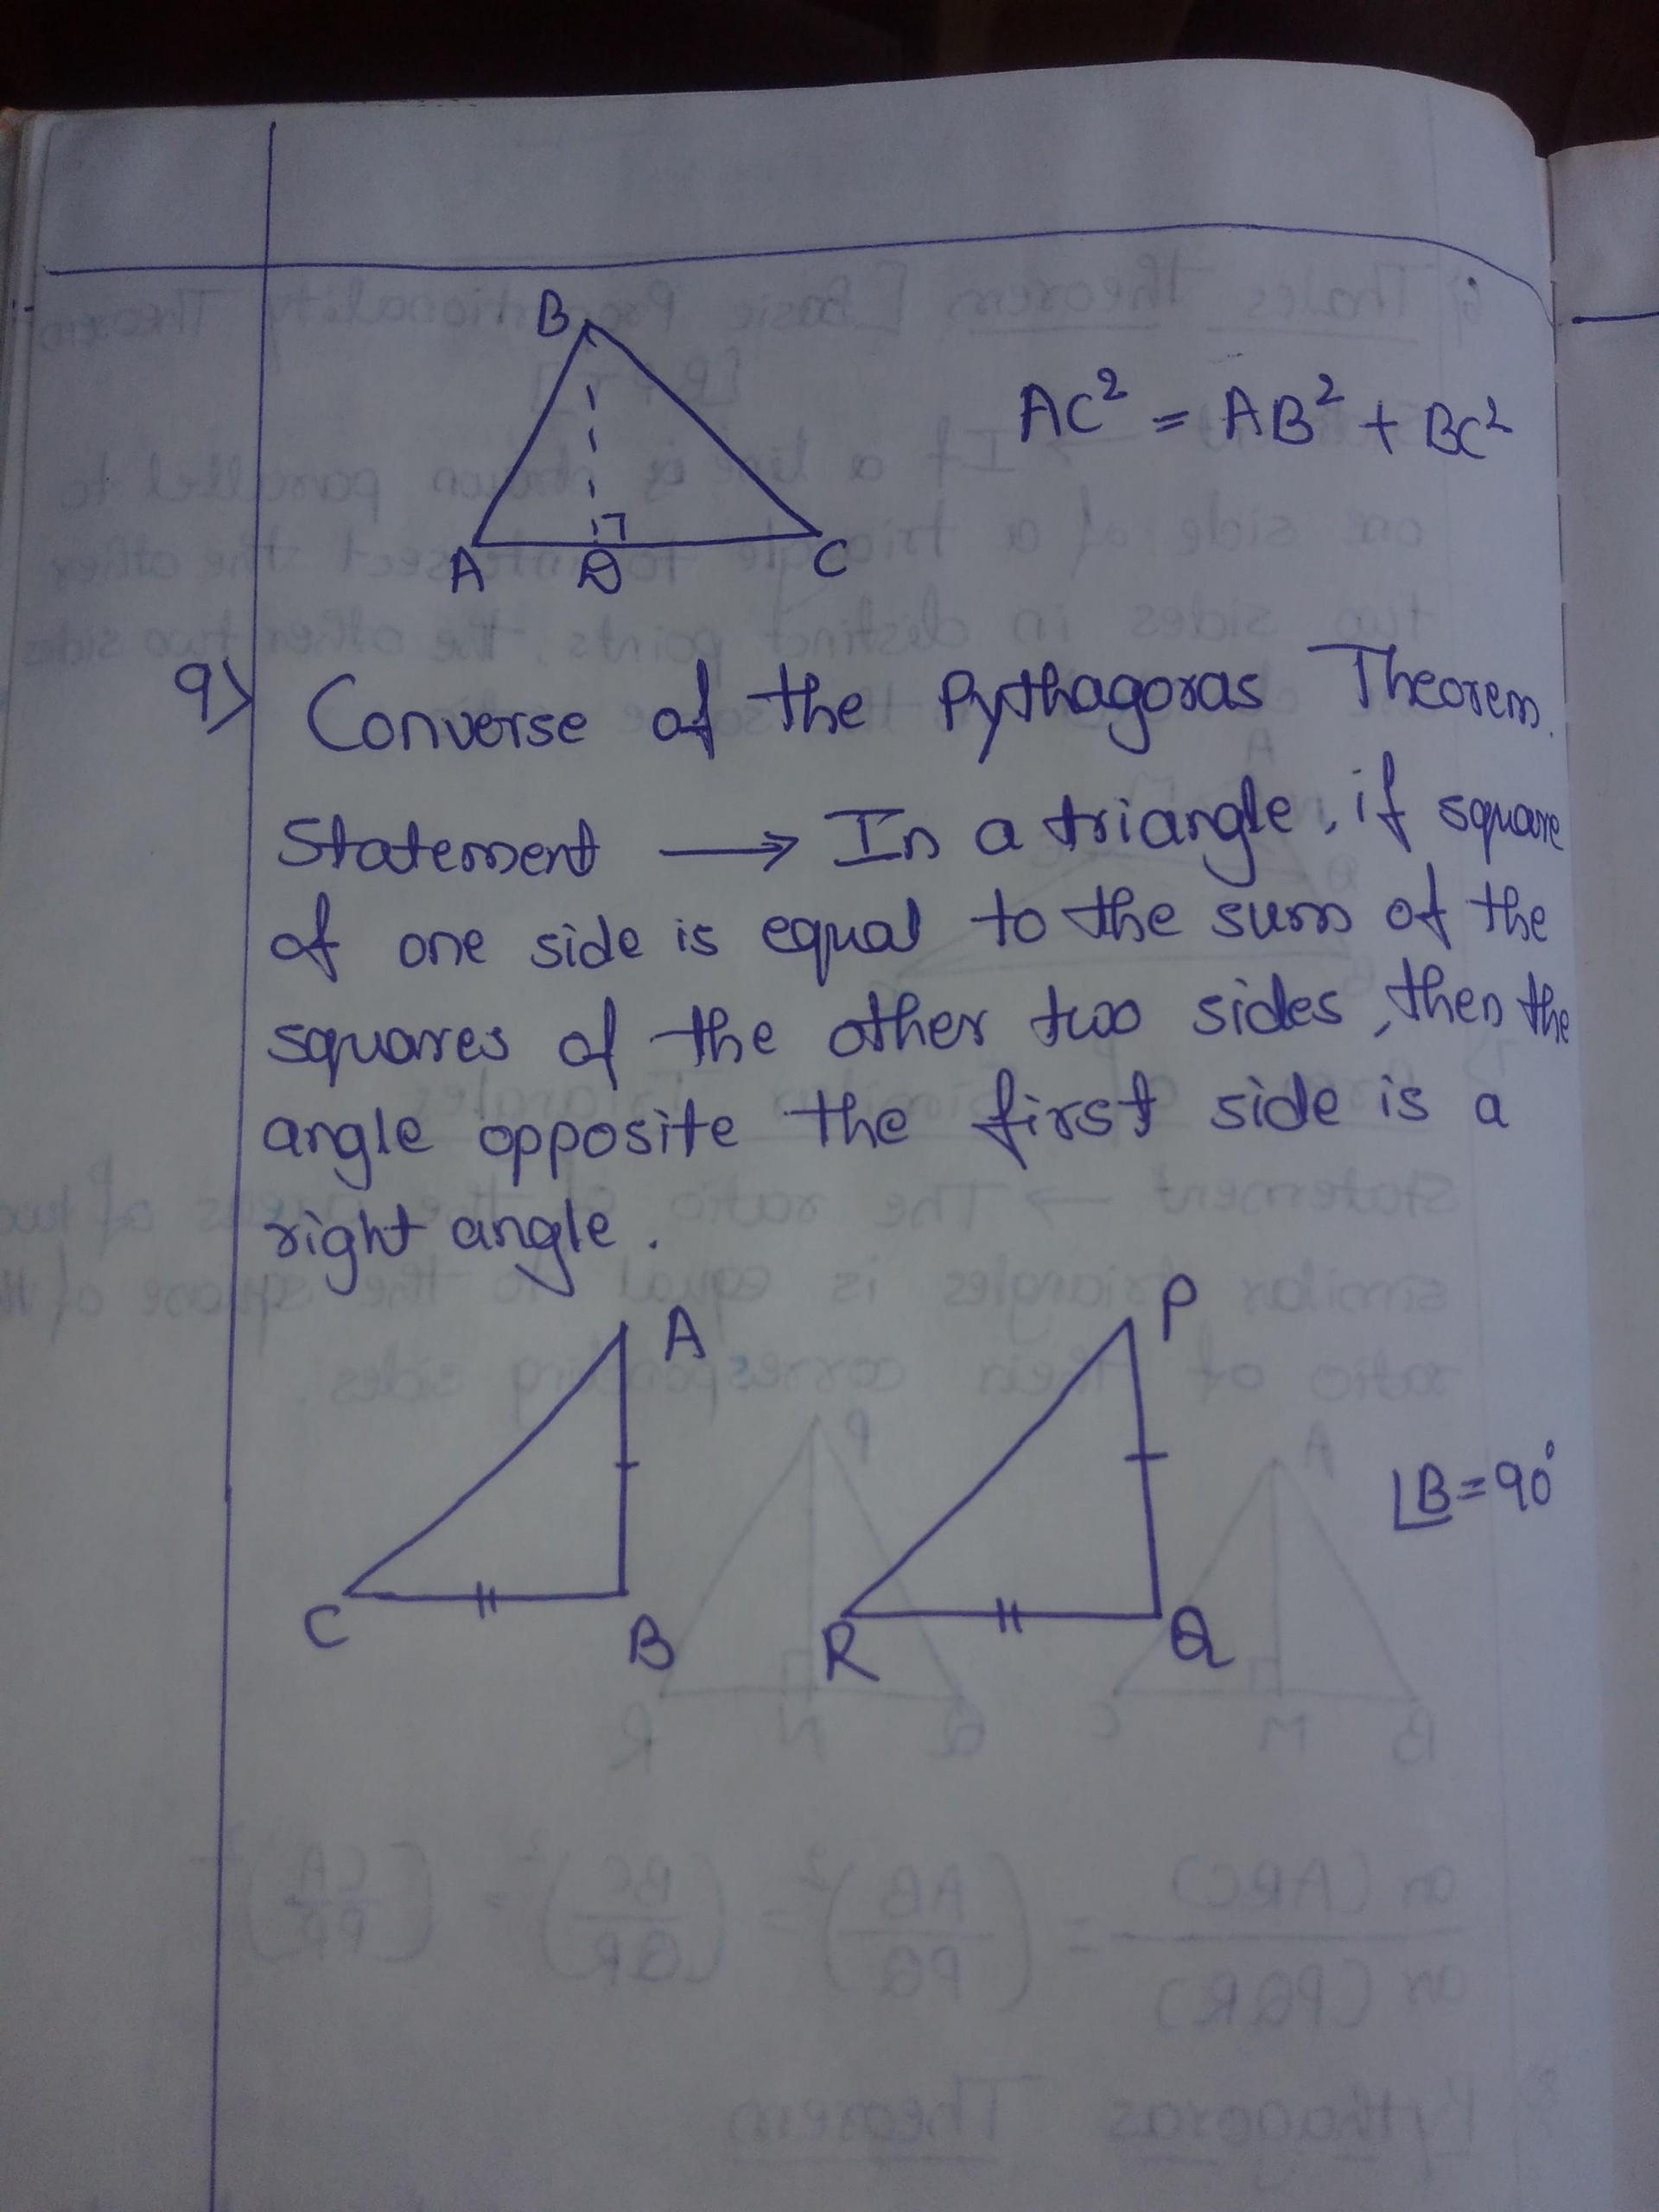 B
AC² = AB² + BC²
A D C
9) Converse of the Pythagoras Theorem.
Statement → In a triangle, if square
of one side is equal to the sum of the
squares of the other two sides, then the
angle opposite the first side is a
right angle.
A P
∠B = 90°
C B R Q